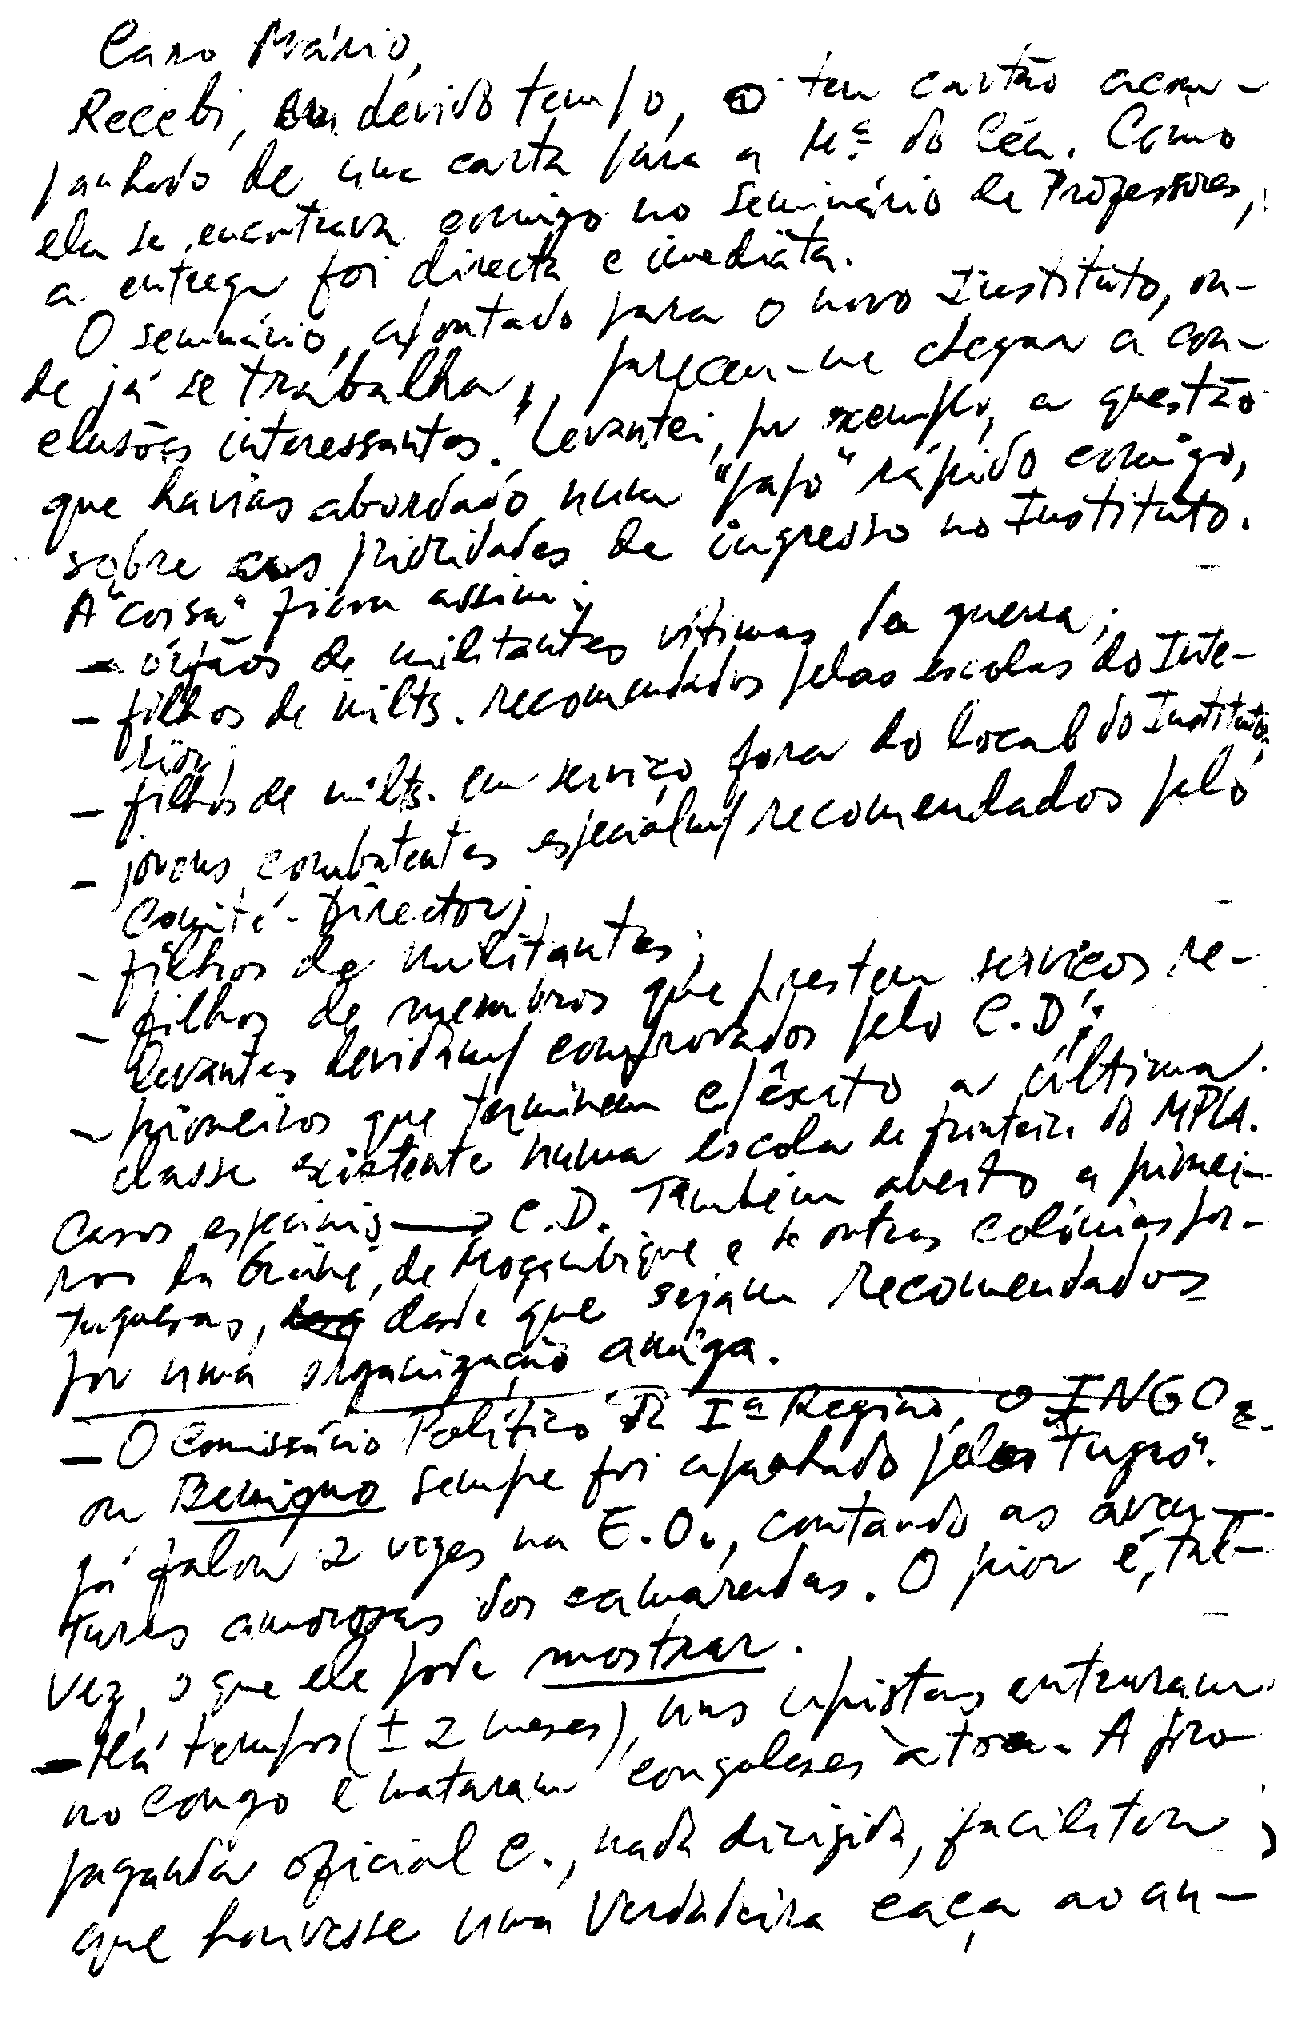 Caro Mário,
Recebi, em devido tempo, o teu cartão acom-
panhado de uma carta para a M.ª do Céu. Como
ela se encontrava comigo no Seminário de Professores,
a entrega foi directa e imediata.
O seminário, apontado para o novo Instituto, on-
de já se trabalha, pareceu-me chegar a con-
clusões interessantes. Levantei, por exemplo, a questão
que havias abordado, num "papo" rápido comigo,
sobre as prioridades de ingresso no Instituto.
A "coisa" ficou assim:
- órfãos de militantes vítimas da guerra;
- filhos de milts. recomendados pelas escolas do Inte-
rior;
- filhos de milts. em serviço fora do local do Instituto;
- jovens combatentes especialm/ recomendados pelo
Comité-Director;
- filhos de militantes;
- filhos de membros que prestem serviços re-
levantes devidam/ comprovados pelo C.D.;
- pioneiros que terminem c/ êxito a última
classe existente numa escola de fronteira do MPLA.
Casos especiais → C.D. Também aberto a pionei-
ros da Guiné, de Moçambique e de outras colónias por-
tuguesas, desde que sejam recomendados
por uma organização amiga.
- O Comissário Político da Iª Região, o INGO
ou Benigno sempre foi apanhado pelos "Tugas".
Já falou 2 vezes na E.O., contando as aven-
turas amorosas dos camaradas. O pior é, tal-
vez, o que ele pode mostrar.
- Há tempos (± 2 meses), uns upistas entraram
no Congo e mataram congoleses à toa. A pro-
paganda oficial C., nada dirigida, facilitou
que houvesse uma verdadeira caça ao an-